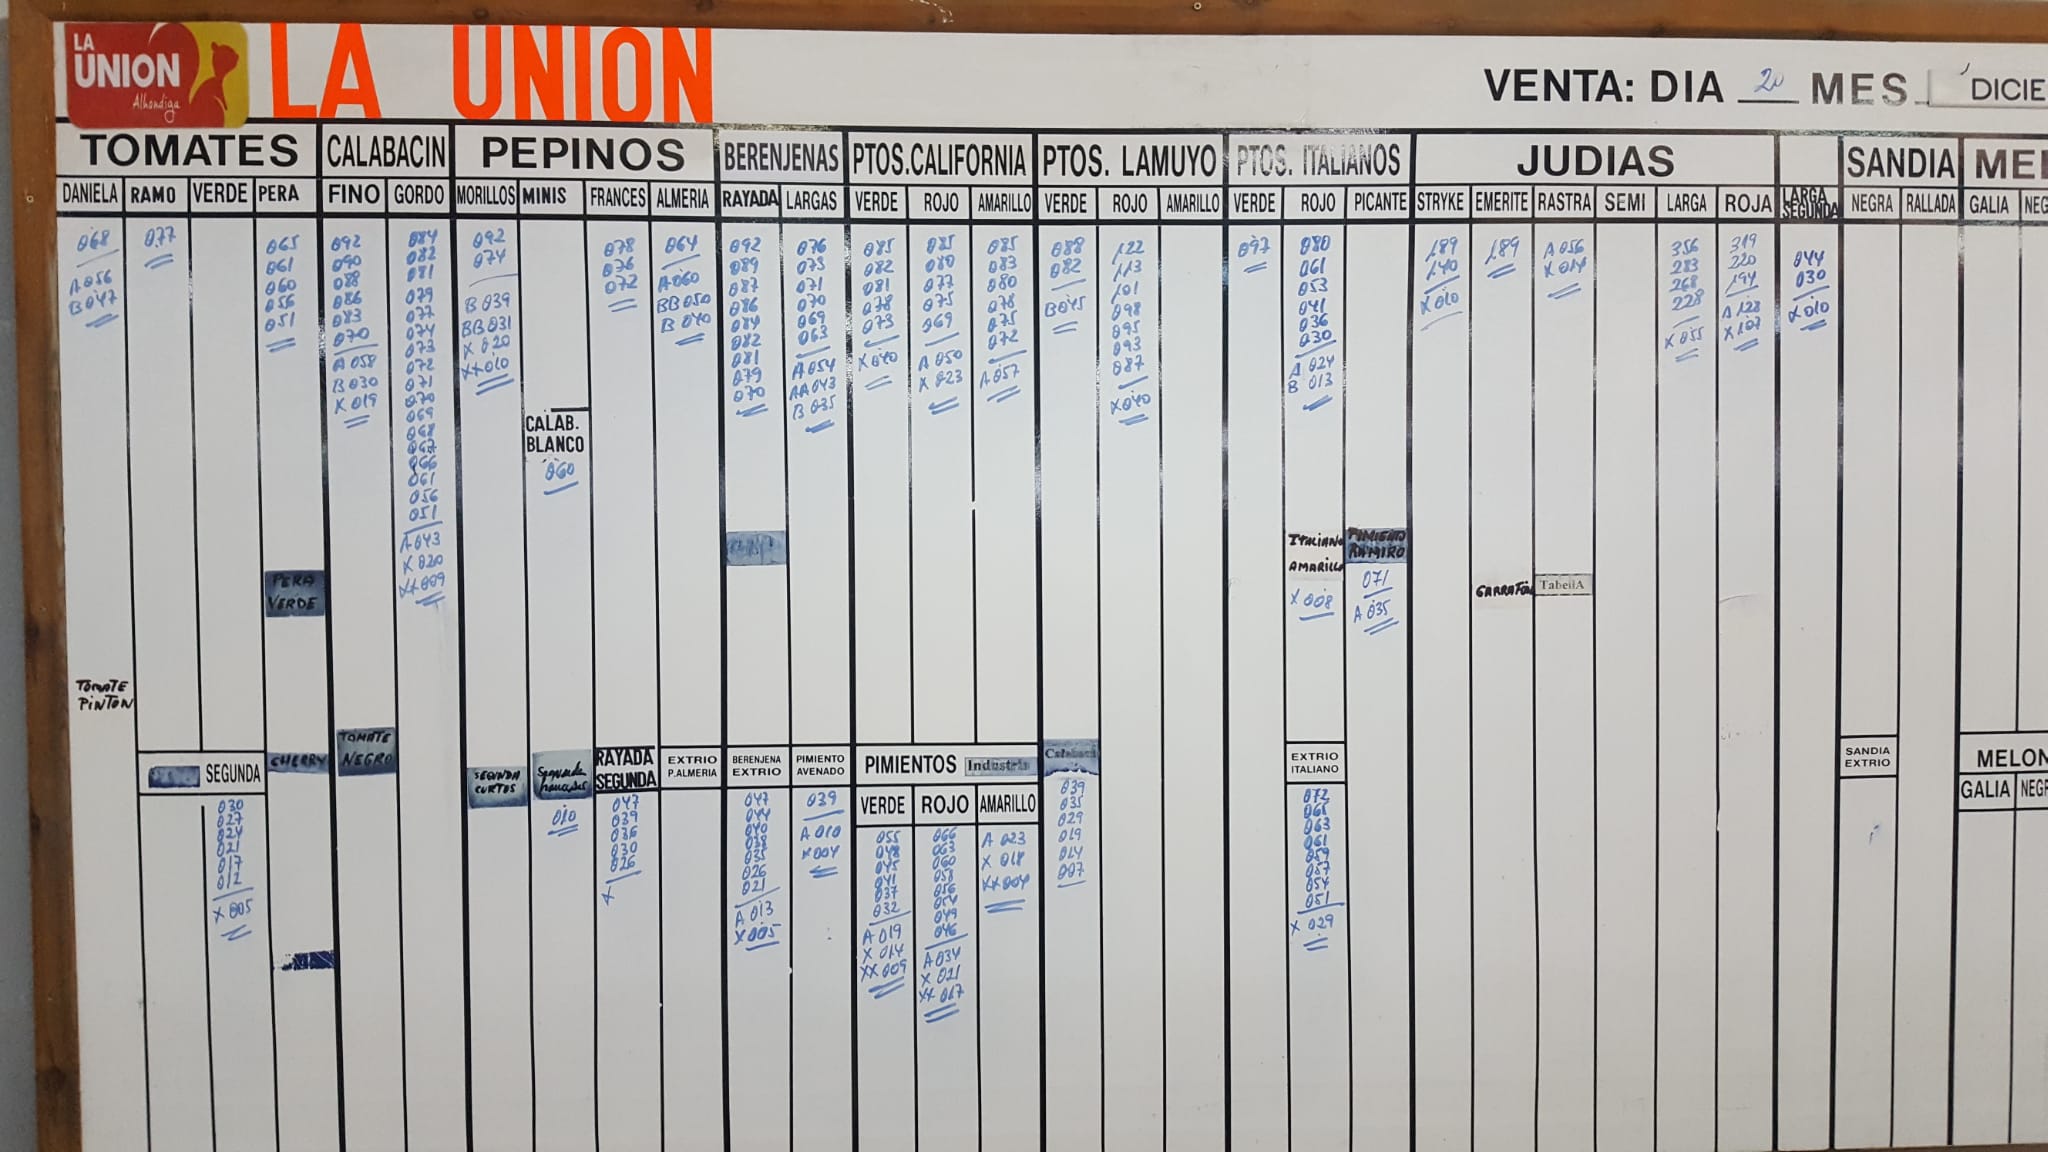 LA
UNION
Alhondiga
LA UNION
VENTA: DIA 20 MES DICIE
TOMATES CALABACIN PEPINOS BERENJENAS PTOS.CALIFORNIA PTOS. LAMUYO PTOS. ITALIANOS JUDIAS SANDIA MEL
DANIELA RAMO VERDE PERA FINO GORDO MORILLOS MINIS FRANCES ALMERIA RAYADA LARGAS VERDE ROJO AMARILLO VERDE ROJO AMARILLO VERDE ROJO PICANTE STRYKE EMERITE RASTRA SEMI LARGA ROJA LARGA SEGUNDA NEGRA RALLADA GALIA NEG
068
A 056
B 047
077
065
061
060
056
051
092
090
088
086
083
070
A 058
B 030
X 019
084
082
081
079
077
074
073
072
071
070
069
068
067
066
061
056
051
A 043
X 020
XX 009
092
074
B 039
BB 031
X 020
XX 010
CALAB.
BLANCO
060
078
076
072
064
A 060
BB 050
B 040
092
089
087
086
084
082
081
079
070
076
073
071
070
069
063
A 054
AA 043
B 035
085
082
081
078
073
X 040
085
080
077
075
069
A 050
X 023
085
083
080
078
075
072
A 057
088
082
B 045
122
113
101
098
095
093
087
X 040
097
080
061
053
041
036
030
A 024
B 013
ITALIANO
AMARILLO
X 008
PIMIENTO
RAMIRO
071
A 035
189
140
X 010
189
GARRAFON
A 056
X 014
TabellA
356
283
268
228
X 055
319
220
194
A 128
X 107
044
030
X 010
PERA
VERDE
TOMATE
PINTON
SEGUNDA
030
027
024
021
017
012
X 005
CHERRY
TOMATE
NEGRO
SEGUNDA
CORTOS
Segunda
franceses
010
RAYADA
SEGUNDA
047
039
036
030
026
X
EXTRIO
P.ALMERIA
BERENJENA
EXTRIO
047
044
040
038
035
026
021
A 013
X 005
PIMIENTO
AVENADO
039
A 010
X 004
PIMIENTOS Industria
VERDE ROJO AMARILLO
055
048
045
041
037
032
A 019
X 014
XX 009
066
063
060
058
056
054
049
046
A 034
X 021
XX 017
A 023
X 018
XX 004
039
035
029
019
014
007
EXTRIO
ITALIANO
072
065
063
061
059
057
054
051
X 029
SANDIA
EXTRIO
MELON
GALIA NEGR